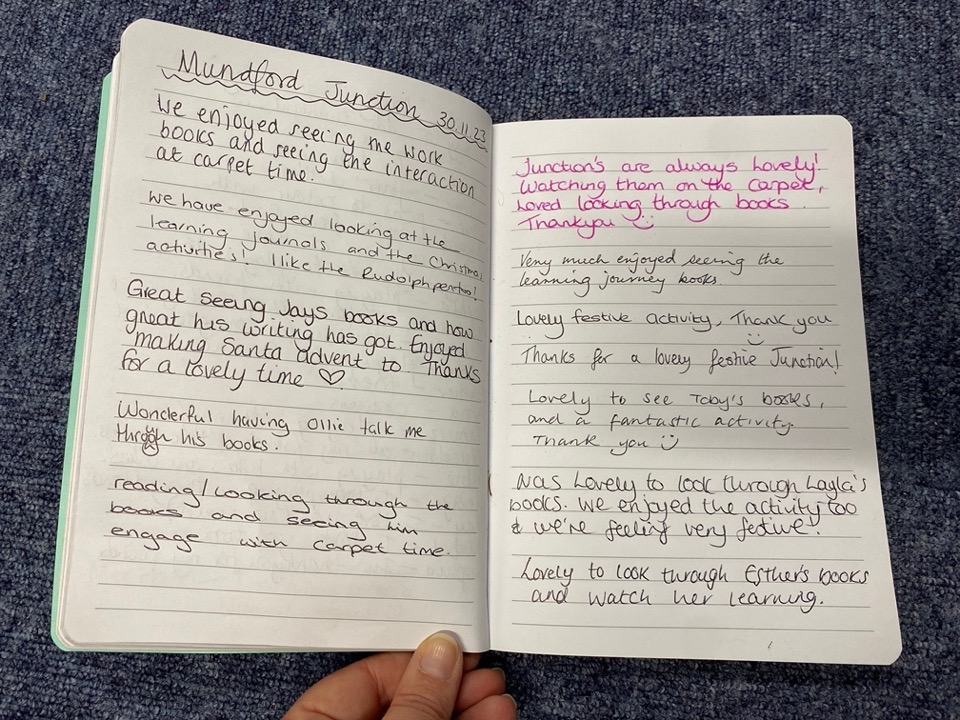 Mundford Junction 30.11.23
We enjoyed seeing the work
books and seeing the interaction
at carpet time.
We have enjoyed looking at the
learning journals and the Christmas
activities! I like the Rudolph
Great seeing Jays books and how
great his writing has got. Enjoyed
making Santa advent to Thanks
for a lovely time ♡
Wonderful having Ollie talk me
through his books.
reading/Looking through the
books and seeing him
engage with carpet time.
Junction's are always Lovely!
Watching them on the carpet,
Loved looking through books.
Thankyou :)
Very much enjoyed seeing the
learning journey books.
Lovely festive activity, Thank you
:)
Thanks for a lovely festive Junction!
Lovely to see Toby's books,
and a fantastic activity.
Thank you :)
Was Lovely to look through Layla's
books. We enjoyed the activity too
& we're feeling very festive!
Lovely to look through Esther's books
and watch her learning.